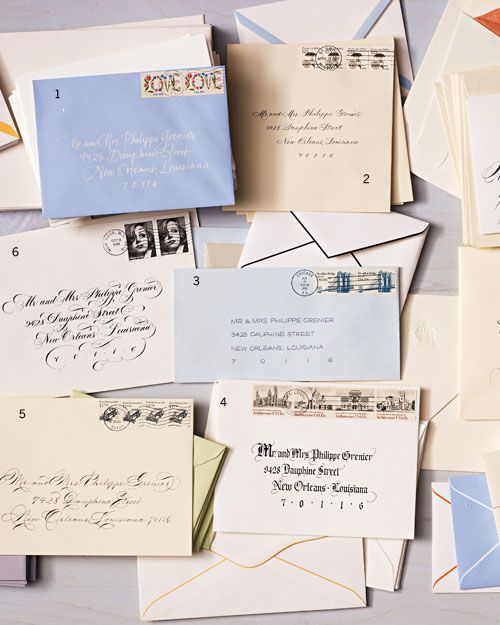 1
LOVE LOVE
Mr and Mrs Philippe Grenier
9428 Dauphine Street
New Orleans, Louisiana
7 0 1 1 6
2
Mr and Mrs Philippe Grenier
9428 Dauphine Street
New Orleans, Louisiana
7 0 1 1 6
6
Mr and Mrs Philippe Grenier
9428 Dauphine Street
New Orleans, Louisiana
7 0 1 1 6
3
MR & MRS PHILIPPE GRENIER
9428 DAUPHINE STREET
NEW ORLEANS, LOUISIANA
7 0 1 1 6
5
Mr and Mrs Philippe Grenier
9428 Dauphine Street
New Orleans, Louisiana 70116
4
Mr. and Mrs. Philippe Grenier
9428 Dauphine Street
New Orleans · Louisiana
7 · 0 · 1 · 1 · 6